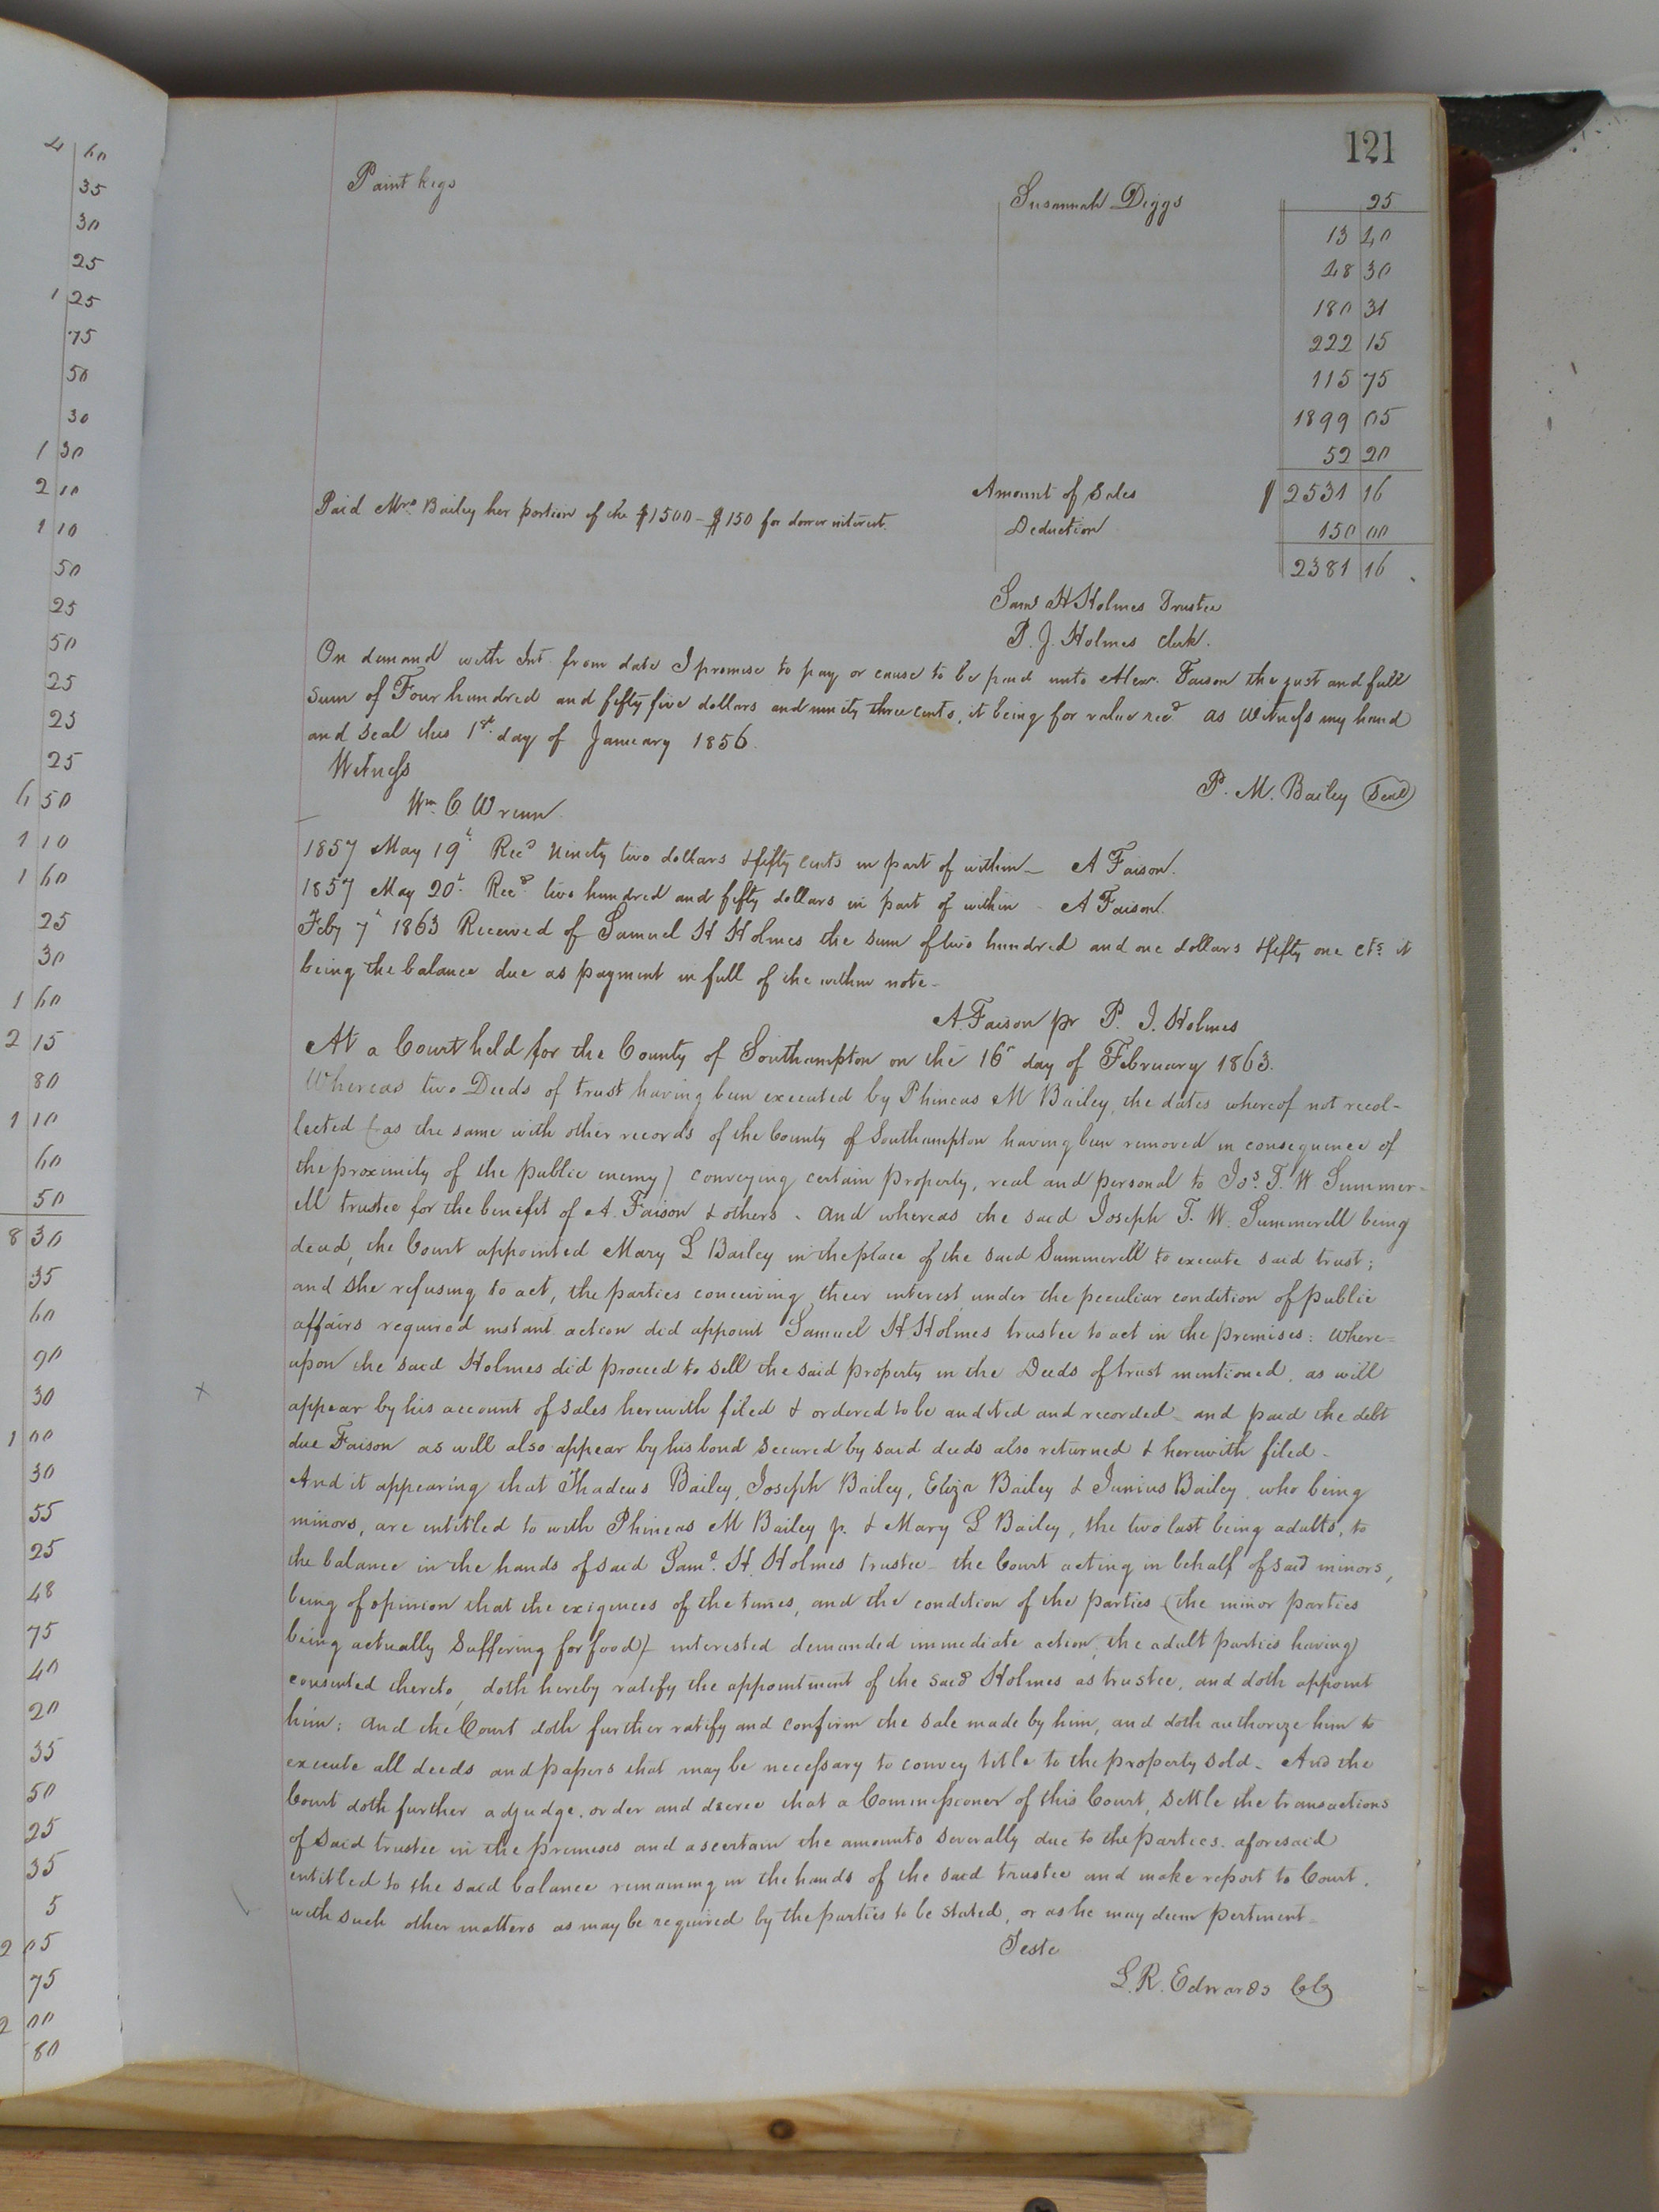 4 60
35
30
25
1 25
75
50
30
1 30
2 10
1 10
50
25
50
25
25
25
6 50
1 10
1 60
25
30
1 60
2 15
80
1 10
60
50
8 30
35
60
90
30
1 00
30
55
25
48
75
40
20
35
50
25
35
5
2 05
75
2 00
80
121
Paint kegs Susannah Diggs 25
13 40
48 30
180 31
222 15
115 75
1899 05
52 20
Amount of Sales $ 2531 16
Paid Mrs Bailey her portion of the $1500 – $150 for dower interest. Deduction 150 00
2381 16
Saml H Holmes Trustee
P. J. Holmes Clerk.
On demand with Int from date I promise to pay or cause to be paid unto Alexr. Faison the just and full
Sum of Four hundred and fifty five dollars and ninety three cents, it being for value recd as Witness my hand
and seal this 1st day of January 1856.
Witness
P. M. Bailey Seal
Wm C. Wrenn.
1857 May 19t Recd Ninety two dollars & fifty cents in part of within – A Faison.
1857 May 20t. Recd two hundred and fifty dollars in part of within – A Faison.
Feby 7t 1863 Received of Samuel H Holmes the sum of two hundred and one dollars & fifty one cts it
being the balance due as payment in full of the within note –
A. Faison pr P. J. Holmes
At a Court held for the County of Southampton on the 16t day of February 1863.
Whereas two Deeds of trust having been executed by Phineas M Bailey, the dates whereof not recol-
lected (as the same with other records of the County of Southampton having been removed in consequence of
the proximity of the public enemy) conveying certain property, real and personal to Jos. T. W Summer-
ell trustee for the benefit of A. Faison & others. And whereas the said Joseph T. W. Summerell being
dead, the Court appointed Mary L Bailey in the place of the said Summerell to execute said trust;
and she refusing to act, the parties conceiving their interest under the peculiar condition of public
affairs required instant action did appoint Samuel H. Holmes trustee to act in the premises: Where=
upon the said Holmes did proceed to sell the said property in the Deeds of trust mentioned, as will
appear by his account of sales herewith filed & ordered to be audited and recorded – and paid the debt
due Faison as will also appear by his bond secured by said deeds also returned & herewith filed –
And it appearing that Thadeus Bailey, Joseph Bailey, Eliza Bailey & Junius Bailey, who being
minors, are entitled to with Phineas M Bailey jr. & Mary L Bailey, the two last being adults, to
the balance in the hands of said Saml. H. Holmes trustee – the Court acting in behalf of said minors,
being of opinion that the exigences of the times, and the condition of the parties (the minor parties
being actually suffering for food) interested demanded immediate action, the adult parties having
consented thereto, doth hereby ratify the appointment of the said Holmes as trustee, and doth appoint
him; and the Court doth further ratify and confirm the sale made by him, and doth authorize him to
execute all deeds and papers that may be necessary to convey title to the property sold – And the
Court doth further adjudge, order and decree that a Commissioner of this Court, settle the transactions
of said trustee in the premises and ascertain the amounts severally due to the parties aforesaid
entitled to the said balance remaining in the hands of the said trustee and make report to Court,
with such other matters as may be required by the parties to be stated, or as he may deem pertinent –
Teste
L. R. Edwards Clk